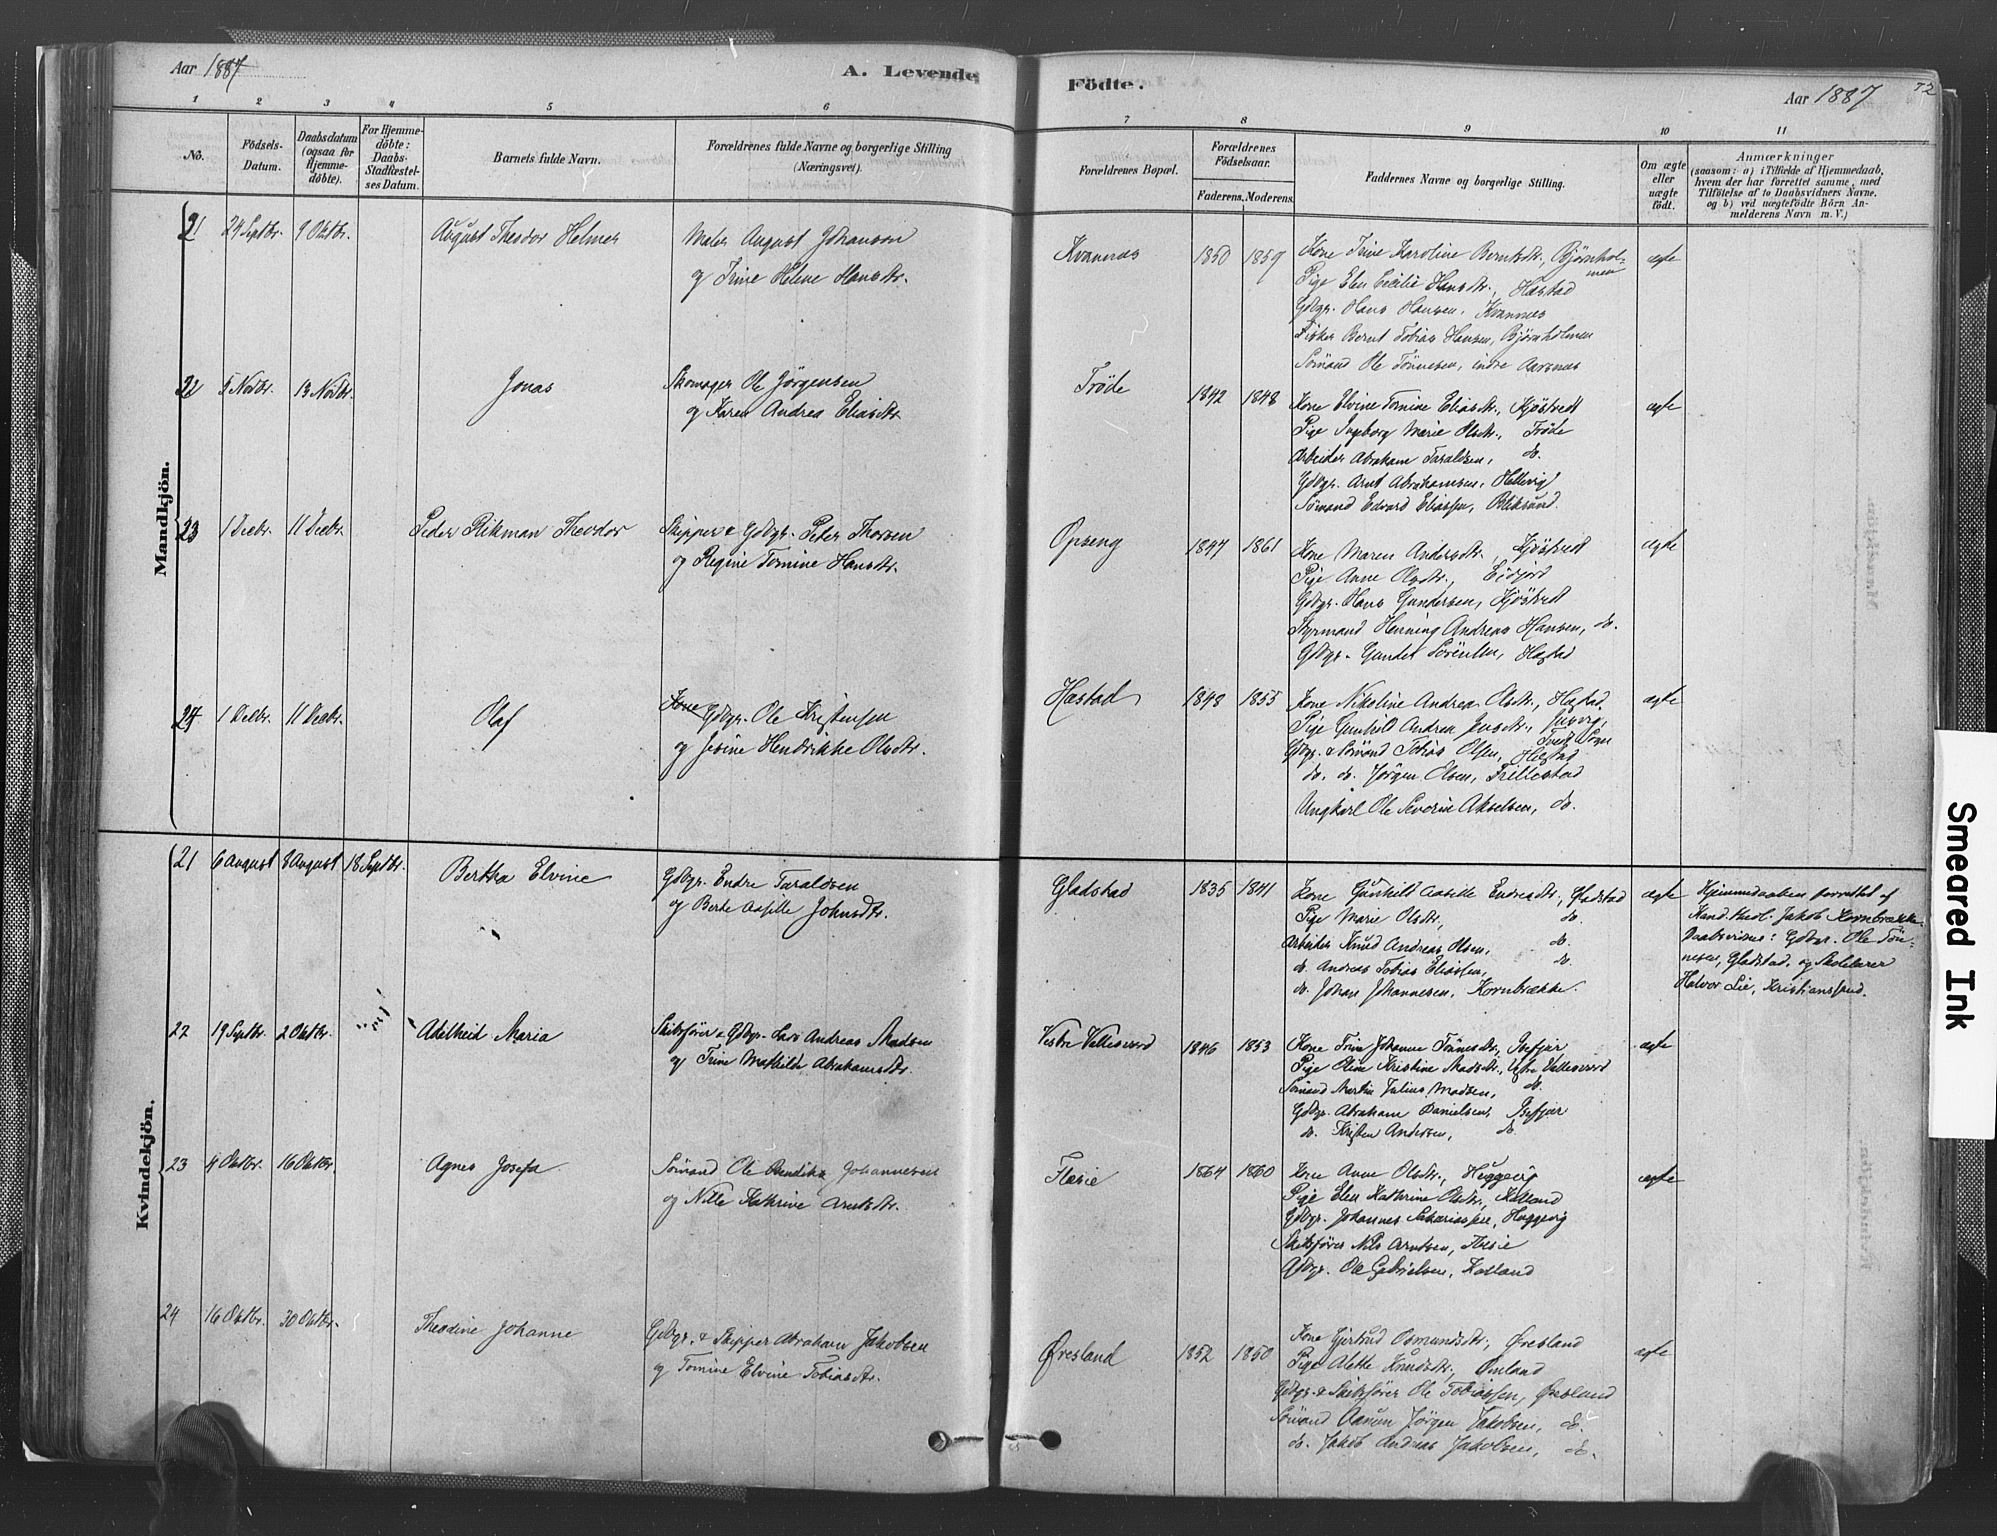 Aar 1887
A. Levende
Födte.
Aar 1887
72
1 2 3 4 5 6 7 8 9 10 11
No.
Födsels-
Datum.
Daabsdatum
(ogsaa for
Hjemme-
döbte).
For Hjemme-
döbte:
Daabs-
Stadfæstel-
ses Datum.
Barnets fulde Navn.
Forældrenes fulde Navne og borgerlige Stilling
(Næringsvei).
Forældrenes Bopæl.
Forældrenes
Födselsaar.
Faderens. Moderens.
Faddernes Navne og borgerlige Stilling.
Om ægte
eller
uægte
födt.
Anmærkninger
(saasom: a) i Tilfælde af Hjemmedaab,
hvem der har forrettet samme, med
Tilföielse af to Daabsvidners Navne.
og b) ved uægtefödte Börn An-
melderens Navn m. V.)
Mandkjön.
21 24 Septbr. 9 Oktbr. August Theodor Helmer
Maler August Johanson
og Trine Helene Hansdtr.
Kvannes 1850 1859
Kone Trine Karoline Berntsdtr., Bjørnhol-
men
Pige Elen Cecilie Hansdtr., Hæstad
Gdbgr. Hans Hansen, Kvannes
Fisker Bernt Tobias Hansen, Bjørnholmen
Sømand Ole Tønnesen, indre Aarsnes
ægte
22 5 Novbr. 13 Novbr. Jonas
Skomager Ole Jørgensen
og Karen Andrea Eliasdtr.
Trøde 1842 1848
Kone Elvine Tomine Eliasdtr., Kjøstvedt
Pige Ingeborg Marie Olsdtr., Trøde
Arbeider Abraham Taraldsen, do.
Gdbgr. Arnt Abrahamsen, Hellevig
Sømand Edvard Eliassen, Bliksund.
ægte
23 1 Decbr. 11 Decbr. Peder Rikman Theodor
Skipper & Gdbgr. Peder Thorsen
og Regine Tomine Hansdtr.
Opseng 1847 1861
Kone Maren Andersdtr., Kjøstvedt
Pige Anne Olsdtr., Eidjord
Gdbgr. Hans Gundersen, Kjøstvedt
Styrmand Henning Andreas Hansen, do.
Gdbgr. Gunder Sørensen, Hæstad
ægte
24 1 Decbr. 11 Decbr. Olaf
Kone Gdbgr. Ole Kristensen
og Jesine Hendrikke Olsdtr.
Hæstad 1848 1855
Kone Nikoline Andrea Olsdtr., Hæstad
Pige Gunhild Andrea Jensdtr.,
Gdbgr. & Sømand Tobias Olsen, Hæstad
do. do. Jørgen Olsen, Trillestad
Ungkarl Ole Severin Akselsen, do.
ægte
Kvindekjön.
21 6 August 8 August 18 Septbr. Bertha Elvine
Gdbgr. Endre Taraldsen
og Berte Aasille Johnsdtr.
Gladstad 1835 1841
Kone Gunhild Aasille Endresdtr., Gladstad
Pige Marie Olsdtr., do.
Arbeider Knud Andreas Olsen, do.
do. Andreas Tobias Eliassen, do.
do. Johan Johannesen, Kornbrække.
ægte
Hjemmedaaben forrettet af
Kand. theol. Jakob Kornbrække
Daabsvidner: Gdbgr. Ole Tøn-
nesen, Gladstad, og Skolelærer
Halvor Lie, Kristianssund.
22 19 Septbr. 2 Oktbr. Adelheid Maria
Skibsfører & Gdbgr. Lars Andreas Madsen
og Trine Mathilde Abrahamsdtr.
Vestre Vallesverd 1846 1853
Kone Trine Johanne Tønnesdtr., Stefjær
Pige Oline Kristine Madsdtr., Vestre Vallesverd
Sømand Martin Julius Madsen, do.
Gdbgr. Abraham Danielsen, Stefjær
do. Kristen Andersen, do.
ægte
23 4 Oktbr. 16 Oktbr. Agnes Josefa
Sømand Ole Bendiks Johannesen
og Nille Kathrine Arntsdtr.
Flæsie 1864 1860
Kone Anne Olsdtr., Huggevig
Pige Elen Kathrine Olsdtr., Kalland
Gdbgr. Johannes Sakariassen, Huggevig
Skibsfører Nils Arntsen, Flæsie
Gdbgr. Ole Gabrielsen, Kalland
ægte
24 16 Oktbr. 30 Oktbr. Theodine Johanne
Gdbgr. & Skipper Abraham Jakobsen
og Tomine Elvine Tobiasdtr.
Øresland 1852 1850
Kone Gjertrud Osmundsdtr., Øresland
Pige Alette Knudsdtr., Omland
Gdbgr. & Skibsfører Ole Tobiassen, Øresland
Sømand Aanun Jørgen Jakobsen, do.
do. Jakob Andreas Jakobsen, do.
ægte
Smeared Ink